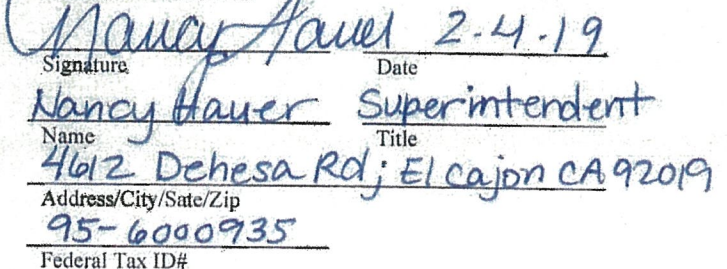 Nancy Hauer 2-4-19
Signature Date
Nancy Hauer Superintendent
Name Title
4612 Dehesa Rd; El cajon CA 92019
Address/City/Sate/Zip
95-6000935
Federal Tax ID#